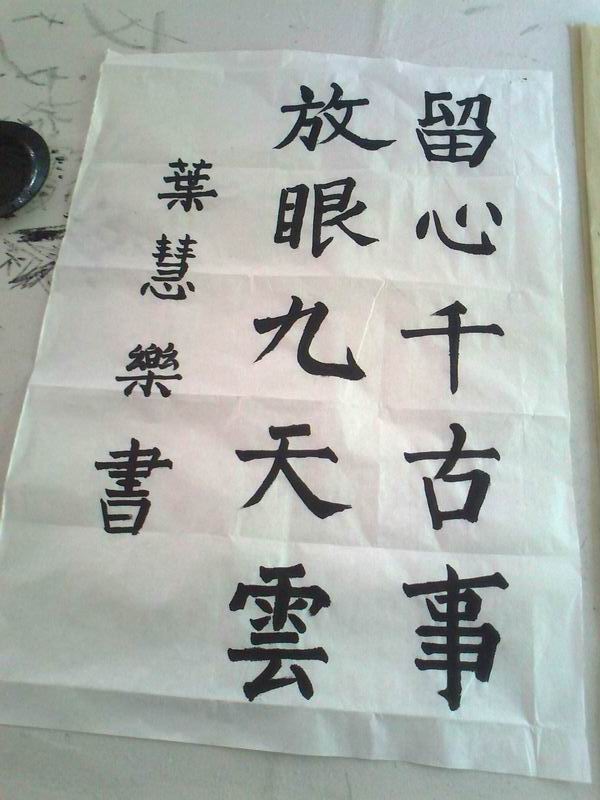 留心千古事
放眼九天雲
葉慧樂書